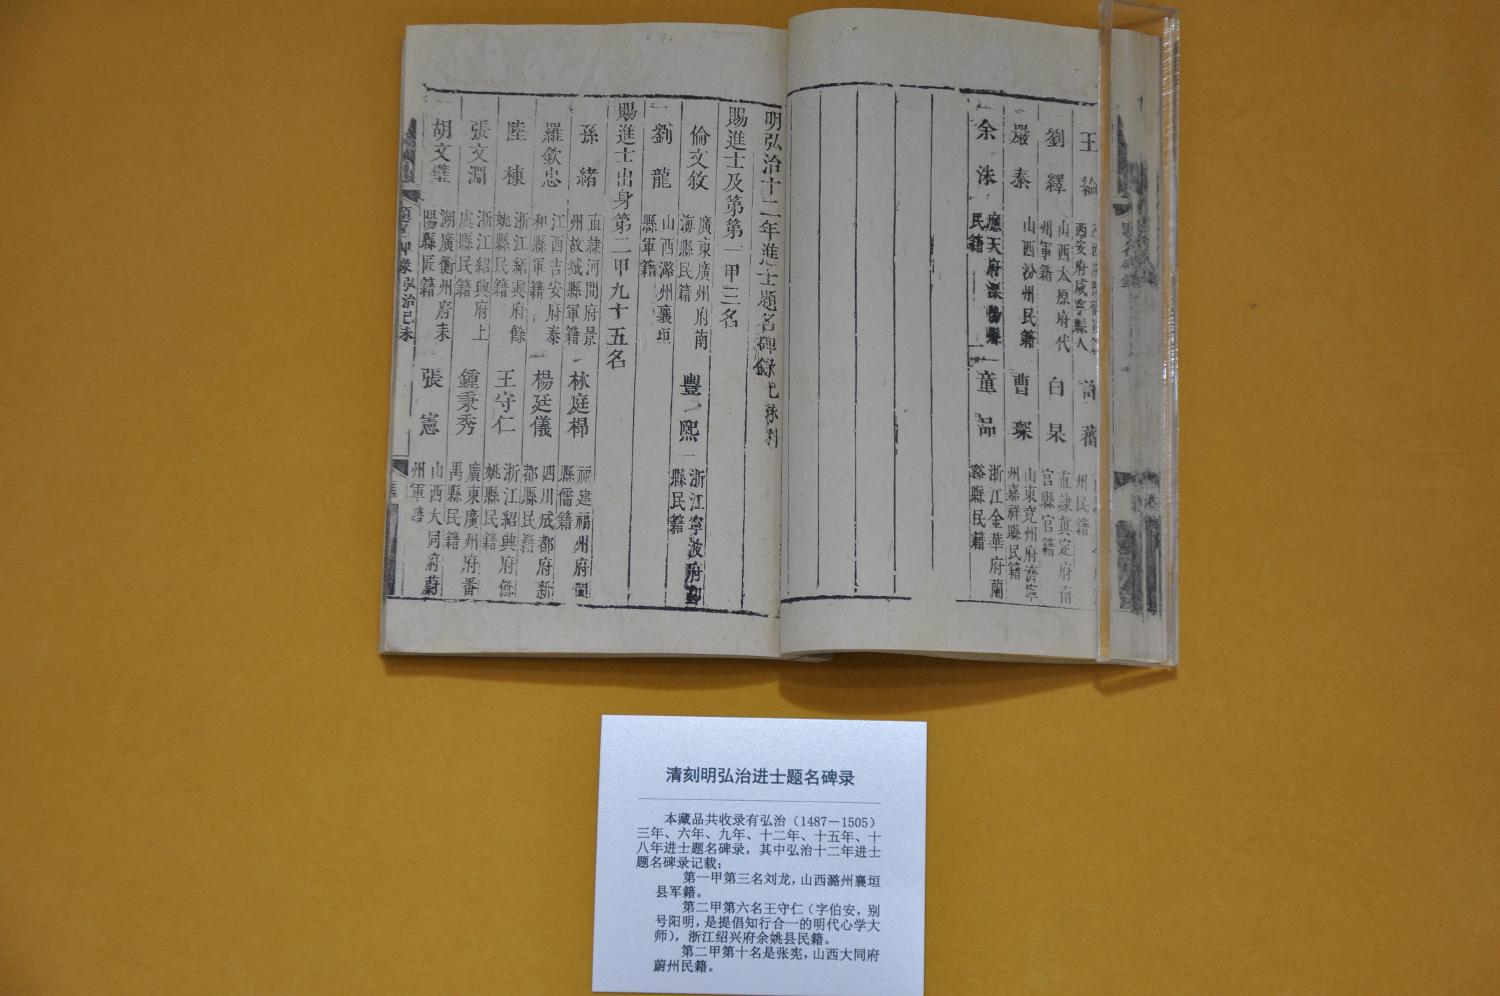 王綸
許蕃
州民籍
劉繹
山西太原府代
州軍籍
白杲
直隸真定府南
宮縣官籍
嚴泰
山西汾州民籍
曹琛
山東兖州府濟寧
州嘉祥縣民籍
余洙
應天府溧陽縣
民籍
童品
浙江金華府蘭
谿縣民籍
明弘治十二年進士題名碑錄己未科
賜進士及第第一甲三名
倫文敘
廣東廣州府南
海縣民籍
豐熙
浙江寧波府鄞
縣民籍
劉龍
山西潞州襄垣
縣軍籍
賜進士出身第二甲九十五名
孫緒
直隸河間府景
州故城縣軍籍
林庭㭿
福建福州府閩
縣儒籍
羅欽忠
江西吉安府泰
和縣軍籍
楊廷儀
四川成都府新
都縣民籍
陸棟
浙江紹興府餘
姚縣民籍
王守仁
浙江紹興府餘
姚縣民籍
張文淵
浙江紹興府上
虞縣民籍
鍾秉秀
廣東廣州府番
禺縣民籍
胡文璧
湖廣衡州府耒
陽縣匠籍
張憲
山西大同府蔚
州軍籍
題名碑錄弘治己未
清刻明弘治进士题名碑录
本藏品共收录有弘治（1487－1505）
三年、六年、九年、十二年、十五年、十
八年进士题名碑录，其中弘治十二年进士
题名碑录记载：
第一甲第三名刘龙，山西潞州襄垣
县军籍。
第二甲第六名王守仁（字伯安，别
号阳明，是提倡知行合一的明代心学大
师），浙江绍兴府余姚县民籍。
第二甲第十名是张宪，山西大同府
蔚州民籍。